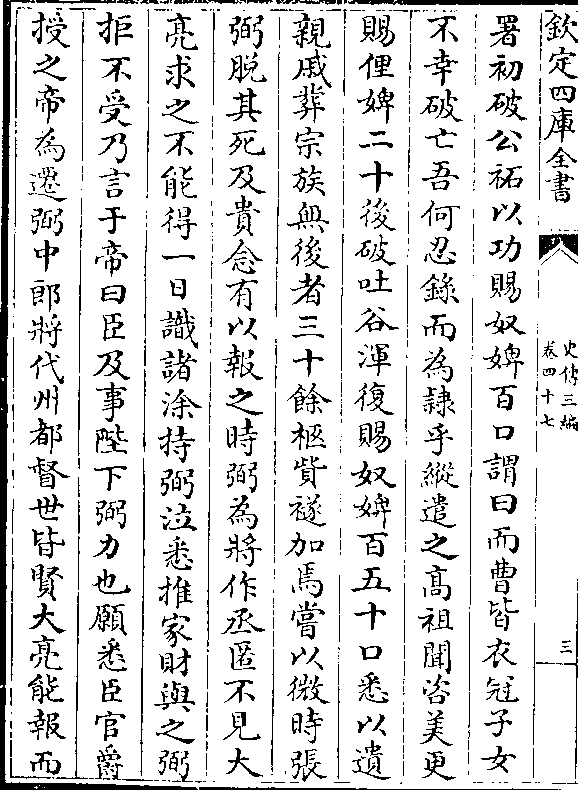 欽定四庫全書
史傳三編
卷四十七
三
署初破公祏以功賜奴婢百口謂曰而曹皆衣冠子女
不幸破亡吾何忍錄而為隷乎縱遣之高祖聞咨美更
賜俚婢二十後破吐谷渾復賜奴婢百五十口悉以遺
親戚葬宗族無後者三十餘柩貲襚加焉嘗以微時張
弼脫其死及貴念有以報之時弼為將作丞匿不見大
亮求之不能得一日識諸涂持弼泣悉推家財與之弼
拒不受乃言于帝曰臣及事陛下弼力也願悉臣官爵
授之帝為遷弼中郎將代州都督世皆賢大亮能報而